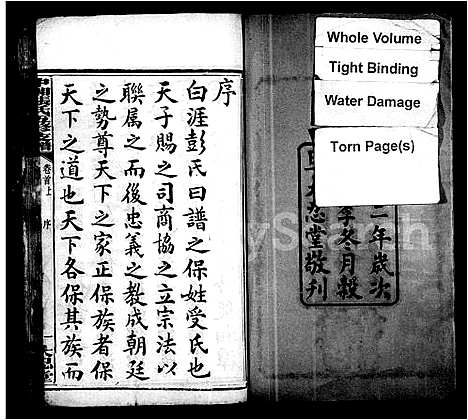 Whole Volume
Tight Binding
Water Damage
Torn Page(s)
二年歲次
季冬月穀
忍堂敬刊
序
白涯彭氏曰譜之保姓受氏也
天子賜之司商協之立宗法以
聯属之而後忠義之教成朝廷
之勢尊天下之家正保族者保
天下之道也天下各保其族而
卷首上
序